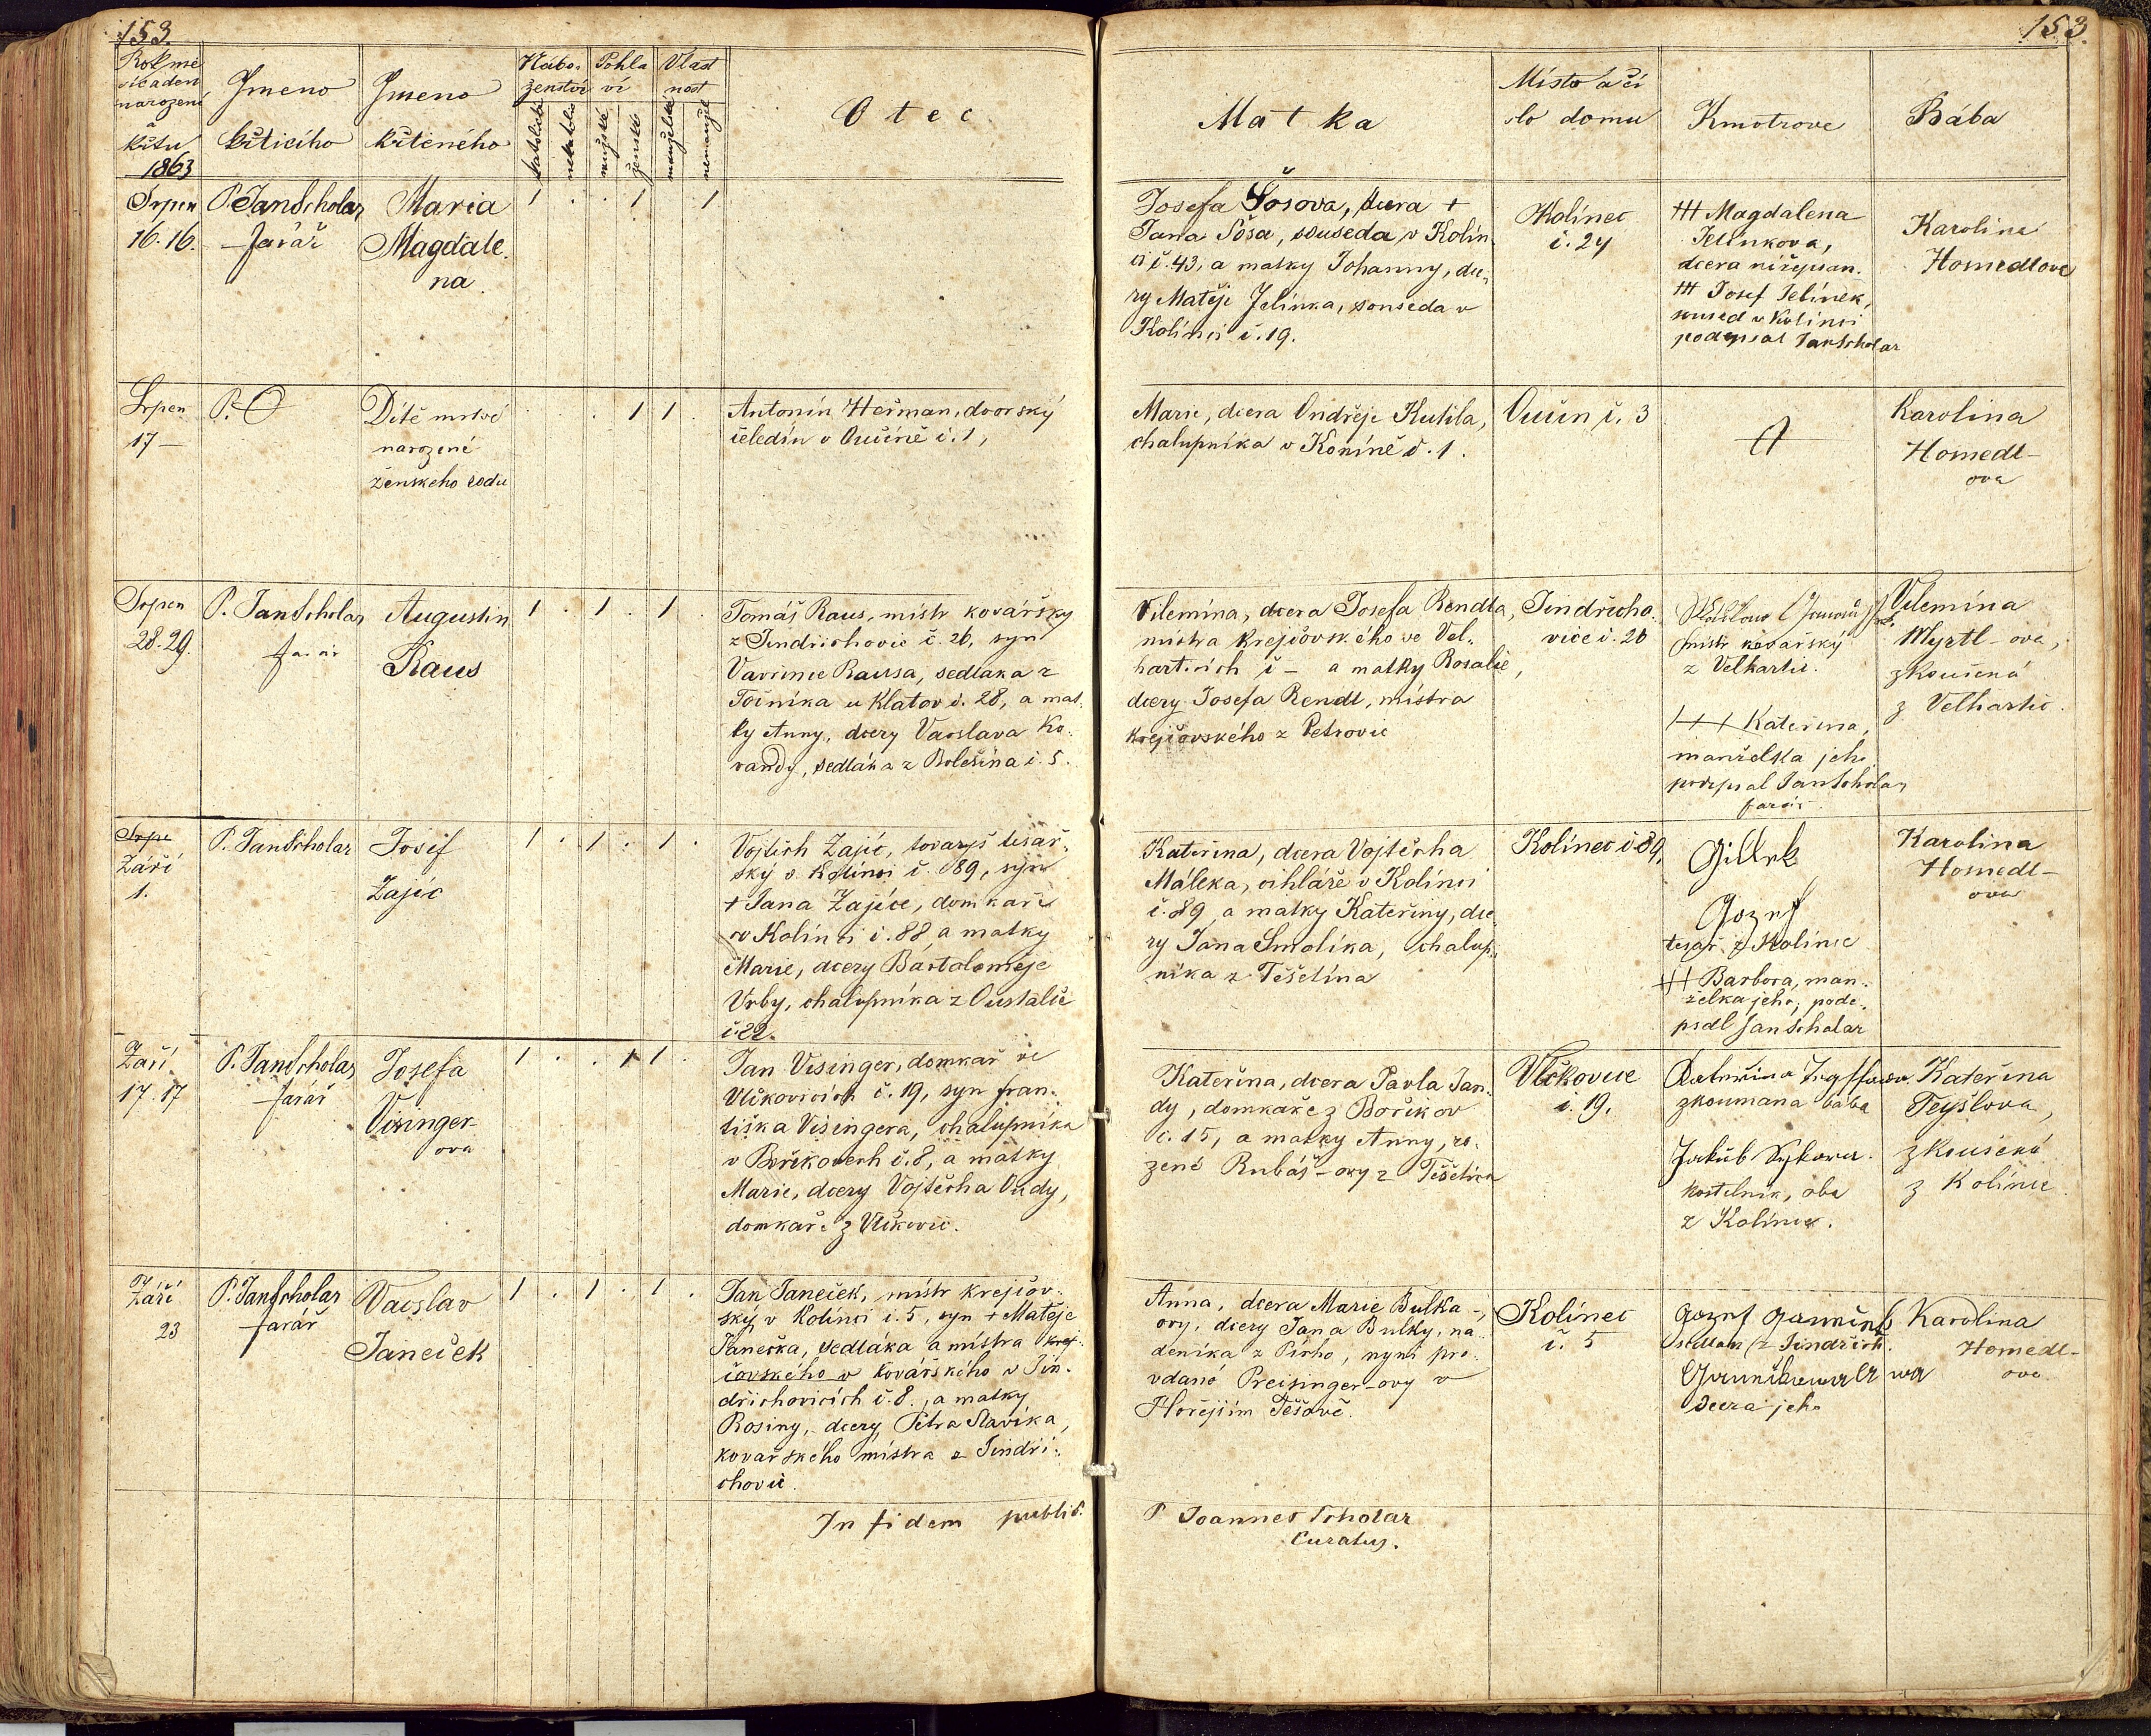 153.
153.
Rok mě
síc a den
narození
a
křtu
1863
Jmeno
křtícího
Jmeno
křteného
Nábo-
ženství
katolické
nekatolic
Pohla
ví
mužské
ženské
Vlast
nost
manželské
nemanžel
Otec
Matka
Místo a čí
slo domu
Kmotrove
Bába
Srpen
16. 16.
P. Jan Scholar
farář
Maria
Magdale-
na
1 . . 1 1
Josefa Šosova, dcera +
Jana Šosa, souseda v Kolin
ci č. 43, a matky Johanny, dce-
ry Matěje Jelínka, souseda v
Kolínci č. 19.
Kolinec
č. 24
+++ Magdalena
Jelinkova,
dcera nížepsan.
+++ Josef Jelínek,
soused v Kolínci
podepsal Jan Scholar
Karolina
Homedlova
Srpen
17 —
P. O
Dítě mrtvé
narozené
ženskeho rodu
. 1 1 .
Antonín Heřman, dvorský
čeledín v Qučíně č. 1,
Marie, dcera Ondřeje Kutila,
chalupníka v Koníně č. 1.
Qučin č. 3
Karolina
Homedl-
ova
Srpen
28. 29.
P. Jan Scholar
farář
Augustin
Raus
1 . 1 . 1
Tomáš Raus, mistr kovářsky
z Jindřichovic č. 26, syn
Vavřince Rausa, sedlaka z
Točníka u Klatov č. 28, a mat-
ky Anny, dcery Vácslava Ko-
vandy, sedláka z Bolešina č. 5.
Vilemína, dcera Josefa Rendla,
mistra krejčovského ve Vel-
harticích č — a matky Rosalie,
dcery Josefa Rendl, místra
krejčovského z Petrovic
Jindřicho-
vice č. 26
mistr kovařský
z Velhartic.
+++ Kateřina,
manželka jeho
podepsal Jan Scholar
farář
Vilemína
Myrtl-ova,
zkoušená
z Velhartic.
Srpe
Září
1.
P. Jan Scholar
Josef
Zajíc
1 . 1 . 1 .
Vojtěch Zajíc, tovaryš tesař-
ský v Kolínci č. 89, syn
+ Jana Zajíce, domkaře
v Kolínci č. 88 a matky
Marie, dcery Bartoloměje
Vrby, chalupníka z Oustalče
č. 22.
Kateřina, dcera Vojtěcha
Máleka, cihláře v Kolínci
č. 89, a matky Kateřiny, dce
ry Jana Smolíka, chalup-
níka z Těšetína
Kolínec č 89,
Jozef
tesař z Kolince
+++ Barbora, man-
želka jeho; pode-
psal Jan Scholar
Karolina
Homedl-
ova
Září
17. 17
P. Jan Scholar
farář
Josefa
Visinger-
ova
1 . . 1 1 .
Jan Visinger, domkař ve
Vlčkovicích č. 19, syn Fran-
tiška Visingera, chalupníka
v Bořikovech č. 8, a matky
Marie, dcery Vojtěcha Vudy,
domkaře z Vlčkovic.
Kateřina, dcera Pavla Jan-
dy, domkaře z Bořikov
č. 15, a matky Anny, ro-
zené Rubáš-ovy z Těšetína
Vlčkovice
č. 19.
zkoumana bába
Jakub Sykora
kostelnik, oba
z Kolince.
Kateřina
Teyslova,
zkoušená
z Kolince
Září
23
P. Jan Scholar
farář
Vacslav
Janeček
1 . 1 . 1 .
Jan Janeček, mistr krejčov-
ský v Kolínci č. 5, syn + Matěje
Janečka, sedláka a mistra krej-
čovského v kovářského v Jin-
dřichovicích č. 8., a matky
Rosiny, dcery Petra Slavíka,
kovařského místra z Jindři-
chovic.
Anna, dcera Marie Bulka-
ovy, dcery Jana Bulky, ná-
deníka z Pírho, nyní pro-
vdané Preisinger-ovy v
Hořejším Těšově.
Kolínec
č. 5
Jozef Janeček
sedlak z Jindřich.
dcera jeho
Karolina
Homedl-
ova
In fidem public.
P Joannes Scholar
Curatus.